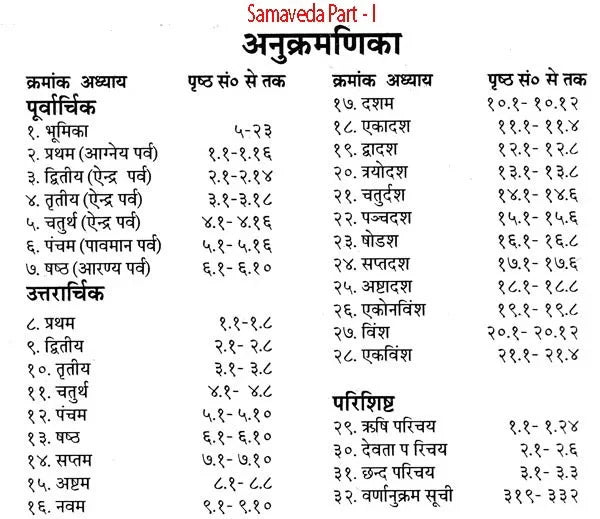 Samaveda Part - I
अनुक्रमणिका
क्रमांक अध्याय पृष्ठ सं० से तक
पूर्वार्चिक
१. भूमिका ५-२३
२. प्रथम (आग्नेय पर्व) १.१-१.१६
३. द्वितीय (ऐन्द्र पर्व) २.१-२.१४
४. तृतीय (ऐन्द्र पर्व) ३.१-३.१८
५. चतुर्थ (ऐन्द्र पर्व) ४.१- ४.१६
६. पंचम (पावमान पर्व) ५.१- ५.१६
७. षष्ठ (आरण्य पर्व) ६.१- ६.१०
उत्तरार्चिक
८. प्रथम १.१-१.८
९. द्वितीय २.१- २.८
१०. तृतीय ३.१- ३.८
११. चतुर्थ ४.१- ४.८
१२. पंचम ५.१- ५.१०
१३. षष्ठ ६.१- ६.१०
१४. सप्तम ७.१- ७.१०
१५. अष्टम ८.१- ८.८
१६. नवम ९.१- ९.१०
क्रमांक अध्याय पृष्ठ सं० से तक
१७. दशम १०.१- १०.१२
१८. एकादश ११.१- ११.४
१९. द्वादश १२.१- १२.८
२०. त्रयोदश १३.१- १३.८
२१. चतुर्दश १४.१- १४.६
२२. पञ्चदश १५.१- १५.६
२३. षोडश १६.१- १६.८
२४. सप्तदश १७.१- १७.६
२५. अष्टादश १८.१- १८.८
२६. एकोनविंश १९.१- १९.८
२७. विंश २०.१- २०.१२
२८. एकविंश २१.१- २१.४
परिशिष्ट
२९. ऋषि परिचय १.१- १.२४
३०. देवता प रिचय २.१- २.६
३१. छन्द परिचय ३.१- ३.३
३२. वर्णानुक्रम सूची ३१९- ३३२